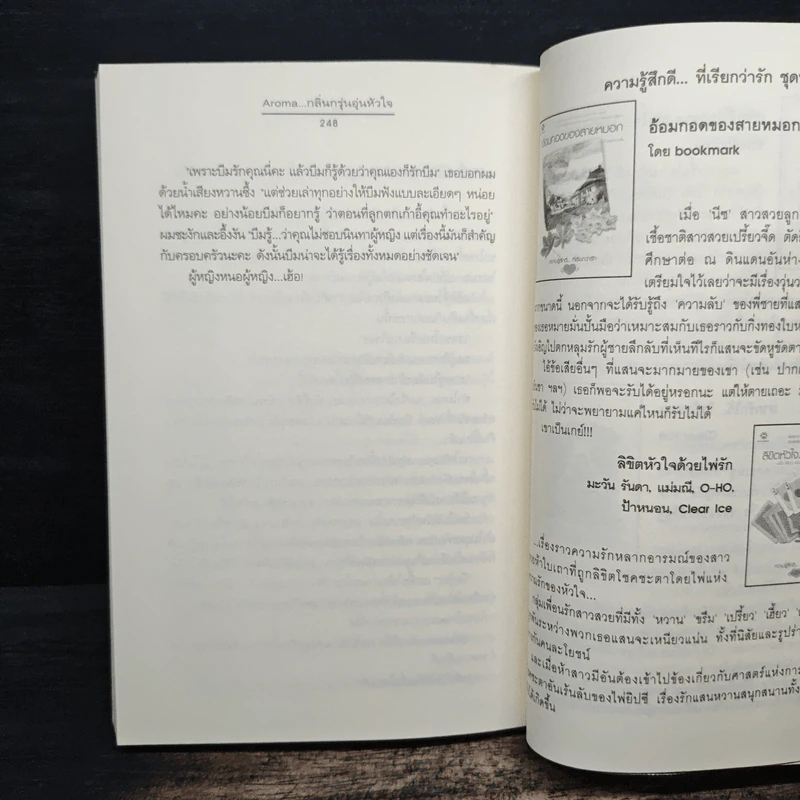 Aroma...กลิ่นกรุ่นอุ่นหัวใจ
248
'เพราะบีมรักคุณนี่คะ แล้วบีมก็รู้ด้วยว่าคุณเองก็รักบีม' เขอบอกผม
ด้วยน้ำเสียงหวานซึ้ง 'แต่ช่วยเล่าทุกอย่างให้บีมฟังแบบละเอียดๆ หน่อย
ได้ไหมคะ อย่างน้อยบีมก็อยากรู้ ว่าตอนที่ลูกตกเก้าอี้คุณทำอะไรอยู่'
ผมชะงักและอึ้งงัน 'บีมรู้...ว่าคุณไม่ชอบนินทาผู้หญิง แต่เรื่องนี้มันก็สำคัญ
กับครอบครัวนะคะ ดังนั้นบีมน่าจะได้รู้เรื่องทั้งหมดอย่างชัดเจน'
ผู้หญิงหนอผู้หญิง...เฮ้อ!
ความรู้สึกดี... ที่เรียกว่ารัก
อ้อมกอดของสายหมอก
โดย bookmark
อ้อมกอดของสายหมอก
เมื่อ 'นีช' สาวสวยลูก
เชื้อชาติสาวสวยเปรี้ยวจี๊ด
ศึกษาต่อ ณ ดินแดนอันห่าง
เตรียมใจไว้เลยว่าจะมีเรื่องวุ่น
ขนาดนี้ นอกจากจะได้รับรู้ถึง 'ความลับ' ของพี่ชายที่แส
เธอหมายมั่นปั้นมือว่าเหมาะสมกับเธอราวกับกิ่งทองใบห
ไปตกหลุมรักผู้ชายลึกลับที่เห็นทีไรก็แสนจะขัดหูขัดตา
ไอ้ข้อเสียอื่นๆ ที่แสนจะมากมายของเขา (เช่น ปาก
ฯลฯ) เธอก็พอจะรับได้อยู่หรอกนะ แต่ให้ตายเถอะ
ไม่ได้ ไม่ว่าจะพยายามแค่ไหนก็รับไม่ได้
เขาเป็นเกย์!!!
ลิขิตหัวใจด้วยไพ่รัก
มะวัน รันดา, แม่มณี, O-HO,
ป้าหนอน, Clear Ice
...เรื่องราวความรักหลากอารมณ์ของสาว
ห้าใบเถาที่ถูกลิขิตโชคชะตาโดยไพ่แห่ง
ความรักของหัวใจ...
กลุ่มเพื่อนรักสาวสวยที่มีทั้ง 'หวาน' 'ขรึม' 'เปรี้ยว' 'เฮี้ยว'
ระหว่างพวกเธอแสนจะเหนียวแน่น ทั้งที่นิสัยและรูปร่า
กันคนละโยชน์
และเมื่อห้าสาวมีอันต้องเข้าไปข้องเกี่ยวกับศาสตร์แห่งกา
ชะตาอันเร้นลับของไพ่ยิปซี เรื่องรักแสนหวานสนุกสนานทั้ง
เกิดขึ้น